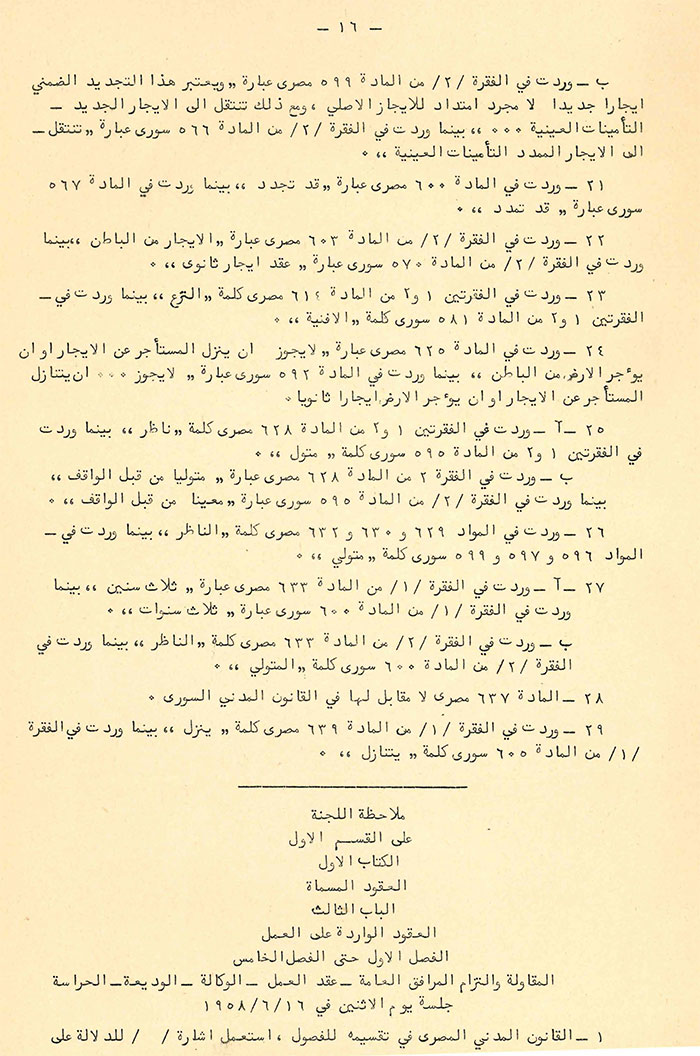 — ١٦ —
ب — وردت في الفقرة /٢/ من المادة ٥٩٩ مصرى عبارة „ ويعتبر هذا التجديد الضمني
ايجارا جديدا لا مجرد امتداد للايجار الاصلي ، ومع ذلك تنتقل الى الايجار الجديد —
التأمينات العينية ٠٠٠ ،، بينما وردت في الفقرة /٢/ من المادة ٥٦٦ سورى عبارة „ تنتقل —
الى الايجار الممدد التأمينات العينية ،، ٠
٢١ — وردت في المادة ٦٠٠ مصرى عبارة „ قد تجدد ،، بينما وردت في المادة ٥٦٧
سورى عبارة „ قد تمدد ،، ٠
٢٢ — وردت في الفقرة /٢/ من المادة ٦٠٣ مصرى عبارة „ الايجار من الباطن ،، بينما
وردت في الفقرة /٢/ من المادة ٥٧٠ سورى عبارة „ عقد ايجار ثانوى ،، ٠
٢٣ — وردت في الفقرتين ١ و٢ من المادة ٦١٤ مصرى كلمة „ الترع ،، بينما وردت في —
الفقرتين ١ و٢ من المادة ٥٨١ سورى كلمة „ الاقنية ،، ٠
٢٤ — وردت في المادة ٦٢٥ مصرى عبارة „ لايجوز ان ينزل المستأجر عن الايجار او ان
يوءجر الارض من الباطن ،، بينما وردت في المادة ٥٩٢ سورى عبارة „ لايجوز ٠٠٠ ان يتنازل
المستأجر عن الايجار او ان يوءجر الارض ايجارا ثانويا ٠
٢٥ — آ — وردت في الفقرتين ١ و٢ من المادة ٦٢٨ مصرى كلمة „ ناظر ،، بينما وردت
في الفقرتين ١ و٢ من المادة ٥٩٥ سورى كلمة „ متول ،، ٠
ب — وردت في الفقرة ٢ من المادة ٦٢٨ مصرى عبارة „ متوليا من قبل الواقف ،،
بينما وردت في الفقرة /٢/ من المادة ٥٩٥ سورى عبارة „ معينا من قبل الواقف ،، ٠
٢٦ — وردت في المواد ٦٢٩ و ٦٣٠ و ٦٣٢ مصرى كلمة „ الناظر ،، بينما وردت في —
المواد ٥٩٦ و ٥٩٧ و ٥٩٩ سورى كلمة „ متولي ،، ٠
٢٧ — آ — وردت في الفقرة /١/ من المادة ٦٣٣ مصرى عبارة „ ثلاث سنين ،، بينما
وردت في الفقرة /١/ من المادة ٦٠٠ سورى عبارة „ ثلاث سنوات ،، ٠
ب — وردت في الفقرة /٢/ من المادة ٦٣٣ مصرى كلمة „ الناظر ،، بينما وردت في
الفقرة /٢/ من المادة ٦٠٠ سورى كلمة „ المتولي ،، ٠
٢٨ — المادة ٦٣٧ مصرى لا مقابل لها في القانون المدني السورى ٠
٢٩ — وردت في الفقرة /١/ من المادة ٦٣٩ مصرى كلمة „ ينزل ،، بينما وردت في الفقرة
/١/ من المادة ٦٠٥ سورى كلمة „ يتنازل ،، ٠
ملاحظة اللجنة
على القسم الاول
الكتاب الاول
العقود المسماة
الباب الثالث
العقود الواردة على العمل
الفصل الاول حتى الفصل الخامس
المقاولة والتزام المرافق العامة — عقد العمل — الوكالة — الوديعة — الحراسة
جلسة يوم الاثنين في ١٩٥٨/٦/١٦
١ — القانون المدني المصرى في تقسيمه للفصول ، استعمل اشارة / / للدلالة على